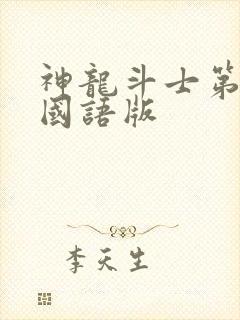 神龍斗士第
國語版
李天生